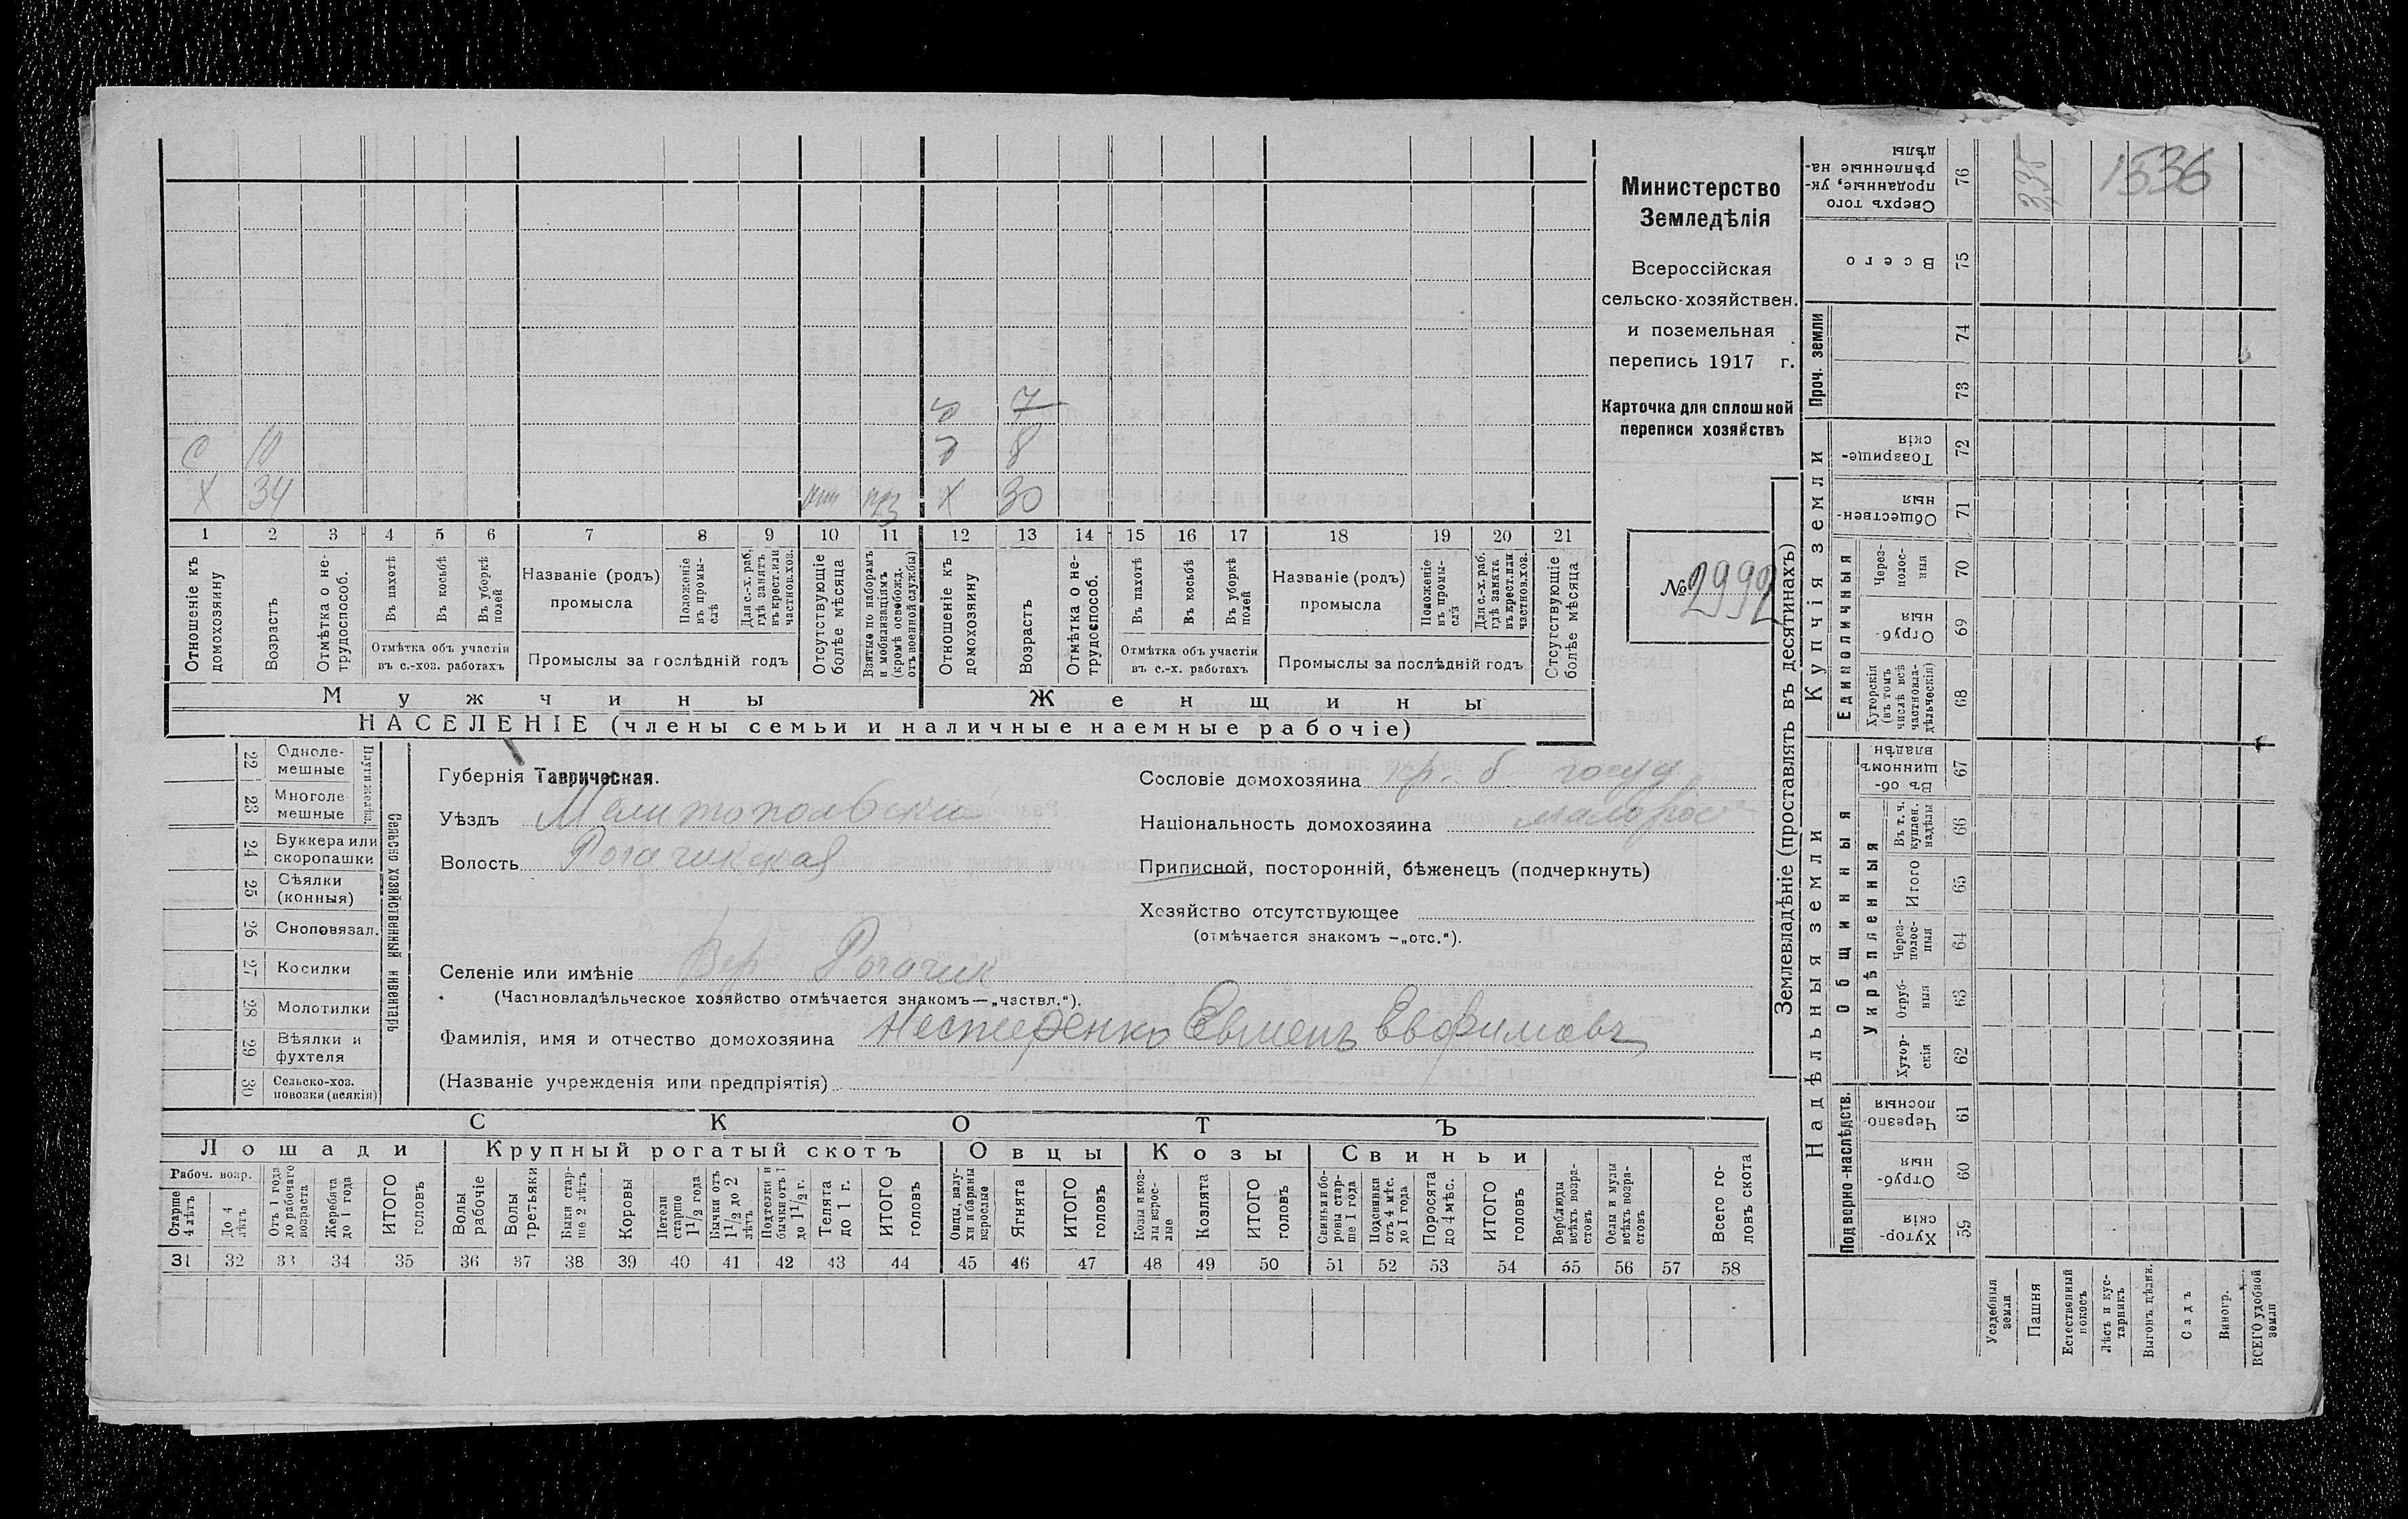 С 10
Х 34
7
8
Х 30
1 2 3 4 5 6 7 8 9 10 11 12 13 14 15 16 17 18 19 20 21
Отношеніе къ домохозяину
Возрастъ
Отмѣтка о не-
трудоспособ.
Въ пахотѣ
Въ косьбѣ
Въ уборкѣ
полей
Отмѣтка объ участіи
въ с.-хоз. работахъ
Названіе (родъ)
промысла
Положеніе
въ промы-
слѣ
Для с.-х. раб,
гдѣ занятъ
въ крест. или
частнов. хоз.
Промыслы за послѣдній годъ
Отсутствующіе
болѣе мѣсяца
Взятые по наборамъ
и мобилизаціямъ
(кромѣ освобожд.
отъ военной службы)
Отношеніе къ
домохозяину
Возрастъ
Отмѣтка о не-
трудоспособ.
Въ пахотѣ
Въ косьбѣ
Въ уборкѣ
полей
Отмѣтка объ участіи
въ с.-х. работахъ
Названіе (родъ)
промысла
Положеніе
въ промы-
слѣ
Для с.-х. раб.
гдѣ занята
въ крест. или
частнов. хоз.
Промыслы за послѣдній годъ
Отсутствующіе
болѣе мѣсяца
Мужчины
Женщины
НАСЕЛЕНІЕ (члены семьи и наличные наемные рабочіе)
Министерство
Земледѣлія
Всероссійская
сельско-хозяйствен.
и поземельная
перепись 1917 г.
Карточка для сплошной
переписи хозяйствъ
№ 2992
22 Одноле-
мешные
23 Многоле
мешные
24 Буккера или
скоропашки
25 Сѣялки
(конныя)
26 Сноповязал.
27 Косилки
28 Молотилки
29 Вѣялки и
фухтеля
30 Сельско-хоз.
повозки (всякія)
Сельско хозяйственный инвентарь
Губернія Таврическая.
Уѣздъ Мелитопольскій
Волость Рогачикская
Селеніе или имѣніе Вер Рогачик
(Частновладѣльческое хозяйство отмѣчается знакомъ —„частвл.“).
Фамилія, имя и отчество домохозяина Нестеренко Евменъ Евфимовъ
(Названіе учрежденія или предпріятія)
Сословіе домохозяина кр. б госуд
Національность домохозяина малорос
Приписной, посторонній, бѣженецъ (подчеркнуть)
Хозяйство отсутствующее
(отмѣчается знакомъ —„отс.“).
СКОТЪ
Лошади
Крупный рогатый скотъ
Овцы
Козы
Свиньи
Рабоч. возр.
Старше
4 лѣтъ
До 4
лѣтъ
Отъ 1 года
до рабочаго
возраста
Жеребята
до 1 года
ИТОГО
головъ
Волы
рабочіе
Волы
третьяки
Быки стар-
ше 2 лѣтъ
Коровы
Нетели
старше
1 1/2 года
Бычки отъ
1 1/2 до 2
лѣтъ
Подтелки и
бычки отъ 1
до 1 1/2 г.
Телята
до 1 г.
ИТОГО
головъ
Овцы, валу-
хи и бараны
взрослые
Ягнята
ИТОГО
головъ
Козы и коз-
лы взрос-
лые
Козлята
ИТОГО
головъ
Свиньи и бо-
ровы стар-
ше 1 года
Подсвинки
отъ 4 мѣс.
до 1 года
Поросята
до 4 мѣс.
ИТОГО
головъ
Верблюды
всѣхъ возра-
стовъ
Ослы и мулы
всѣхъ возра-
стовъ
Всего го-
ловъ скота
31 32 33 34 35 36 37 38 39 40 41 42 43 44 45 46 47 48 49 50 51 52 53 54 55 56 57 58
Землевладѣніе (проставлять въ десятинахъ)
Надѣльныя земли
Купчія земли
Проч. земли
Подворно-наслѣдств.
Общинныя
Укрѣпленныя
Единоличныя
76 Сверхъ того
проданные, ук-
рѣпленные на-
дѣлы
1536
75 Всего
74
73
72 Товарище-
скія
71 Обществен-
ныя
70 Через-
полос-
ныя
69 Отруб-
ныя
68 Хуторскія
(въ томъ
числѣ всѣ
частновла-
дѣльческія)
67 Въ об-
щинномъ
владѣн.
66 Въ т. ч.
куплен.
надѣлы
65 Итого
64 Через-
полос-
ныя
63 Отруб-
ныя
62 Хутор-
скія
61 Черезпо-
лосныя
60 Отруб-
ныя
59 Хутор-
скія
Усадебныя
земли
Пашня
Естественный
покосъ
Лѣсъ и кус-
тарникъ
Выгонъ, цѣлин.
Садъ
Виногр.
ВСЕГО удобной
земли